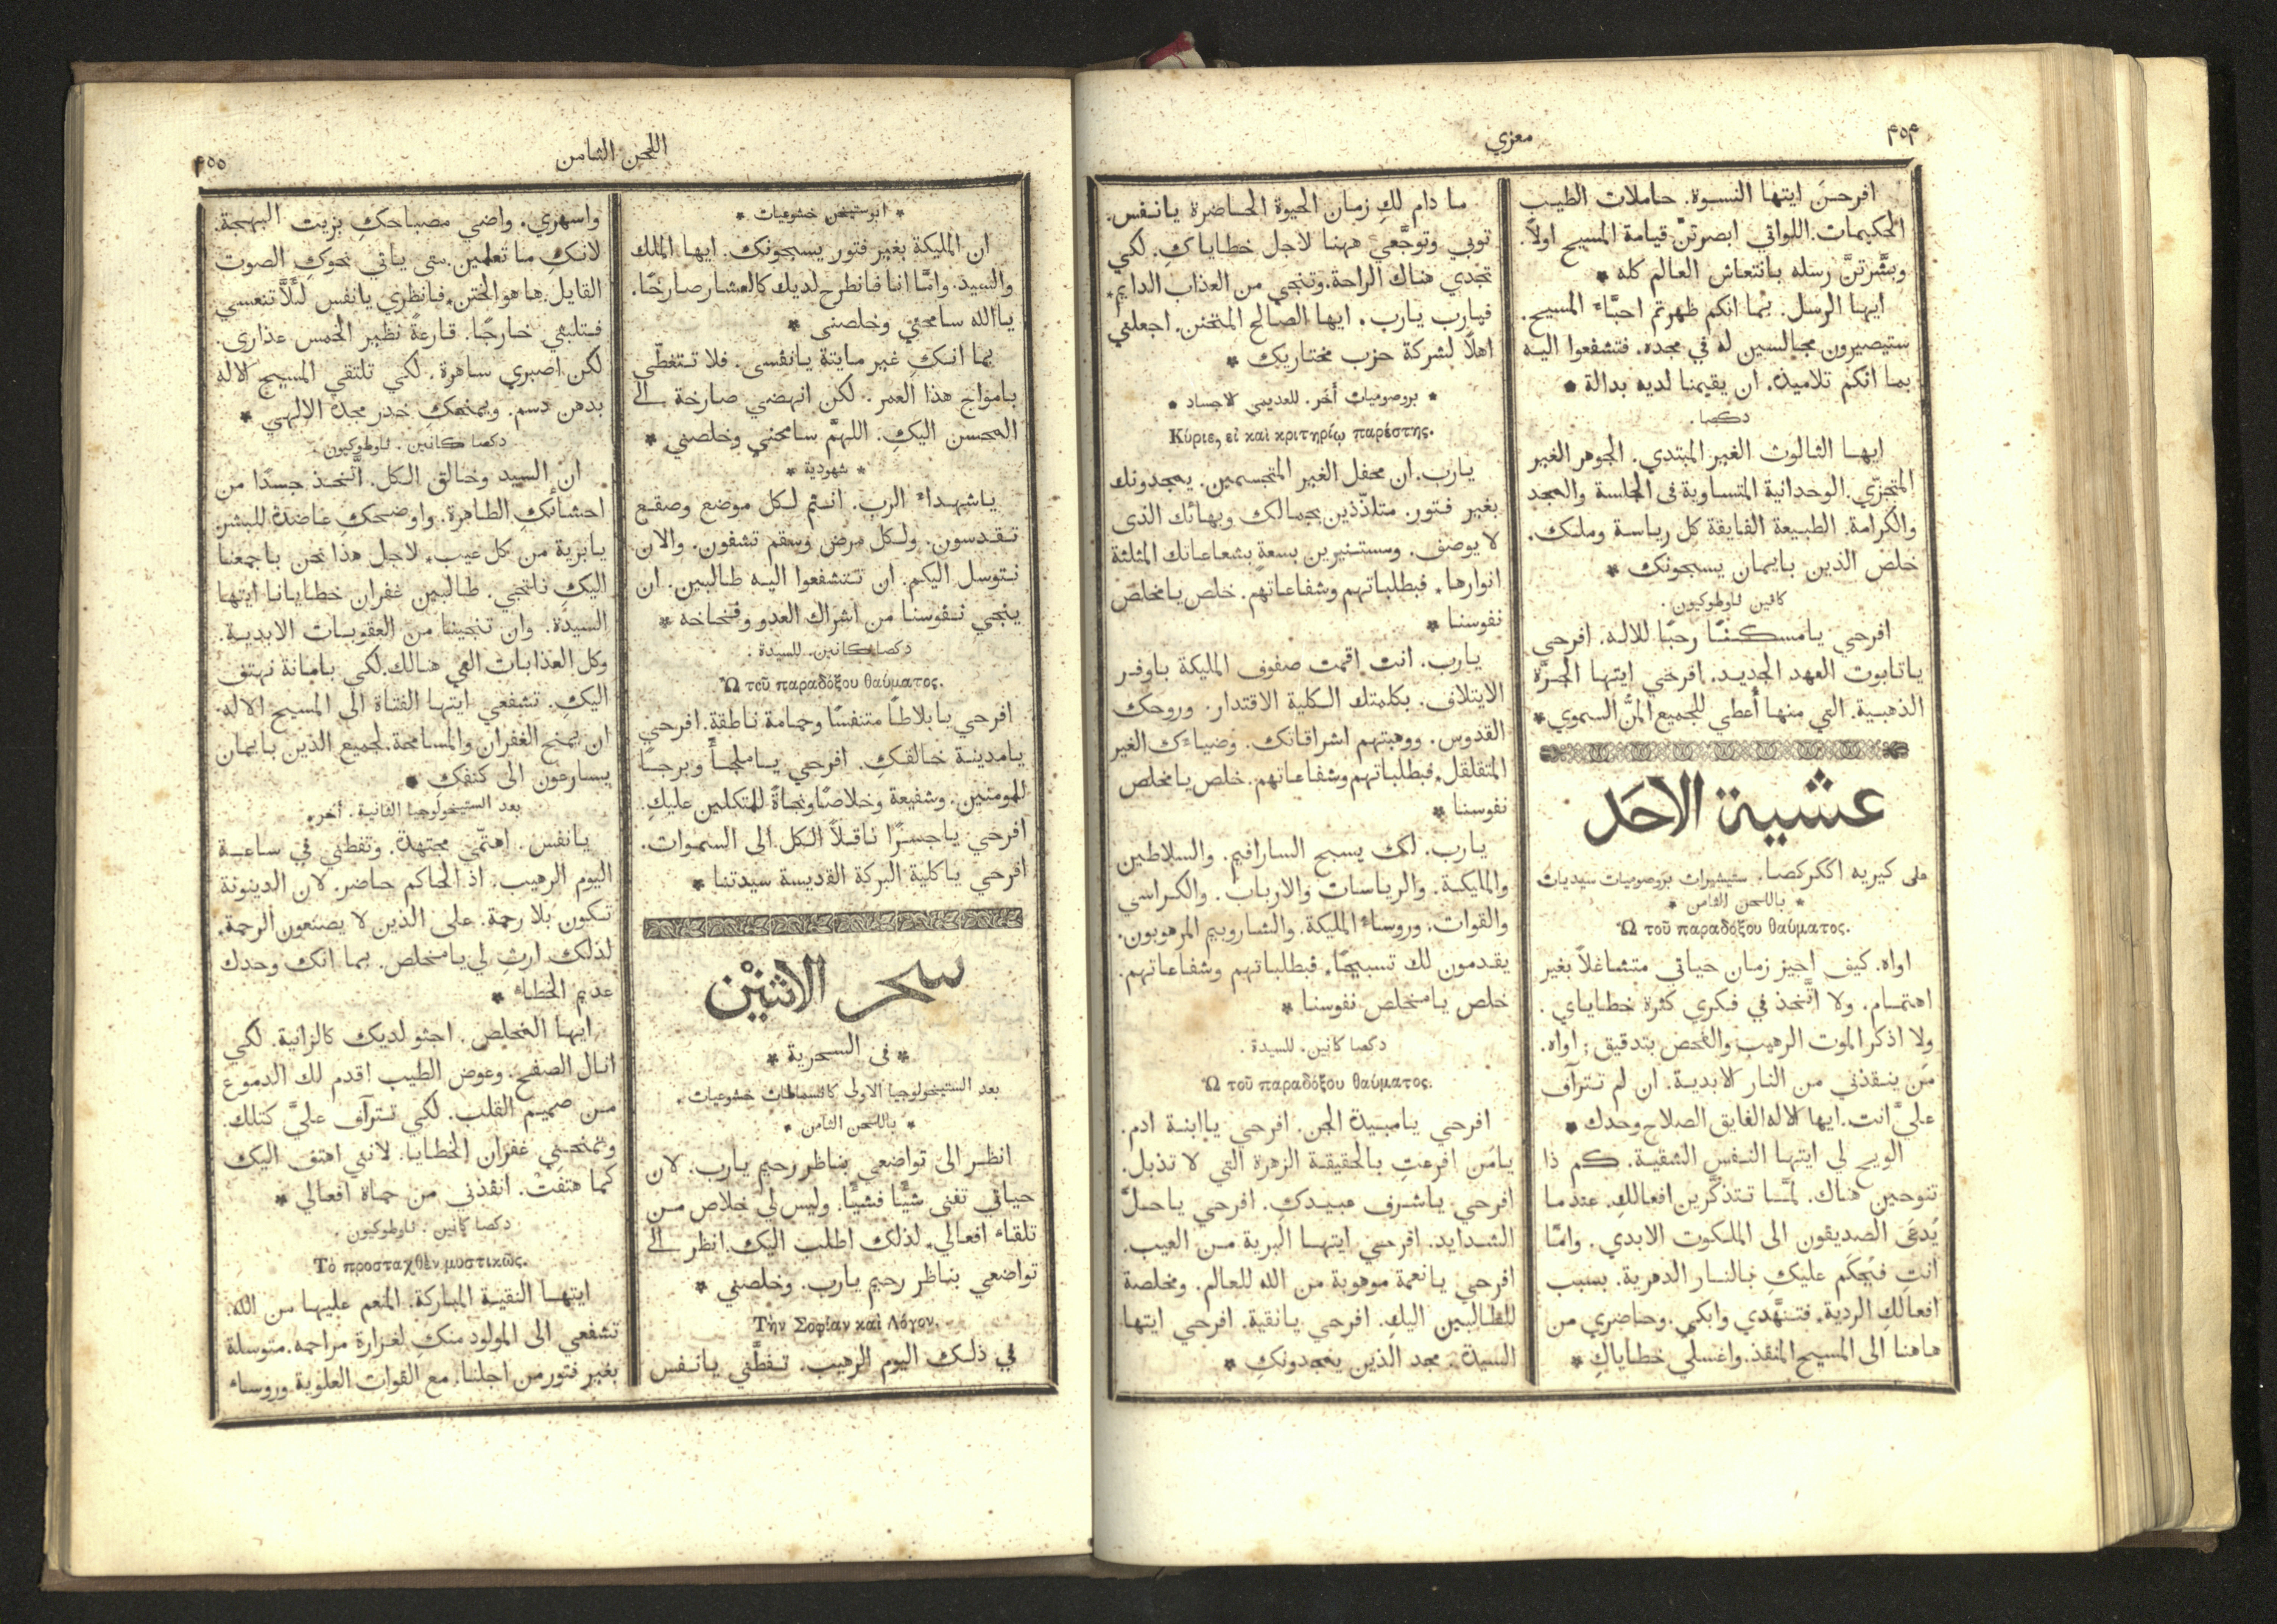 ٤٥٤
معزي
افرحنَ ايتها النسوة. حاملات الطيب
الحكيمات. اللواتي ابصرتنَّ قيامة المسيح اولاً.
وبشَّرتنَّ رسله بانتعاش العالم كله *
ايها الرسل. بما انكم ظهرتم احبَّاءَ المسيح.
ستيصيرون مجالسين له في مجده. فتشفعوا اليه
بما انكم تلاميذه. ان يقيمنا لديه بدالة *
دكصا.
ايها الثالوث الغير المبتدي. الجوهر الغير
المتجزّي. الوحدانية المتساوية فى الجلسة والمجد
والكرامة. الطبيعة الفايقة كل رياسة وملك.
خلص الذين بايمان يسبحونك *
كانين ثاوطوكيون.
افرحي يامسكنًا رحبًا للاله. افرحي
ياتابوت العهد الجديد. افرحي ايتها الجرَّة
الذهبية. التي منها أُعطي للجميع المنُّ السموي *
عشية الاحَد
على كيريه اككركصا. ستيشيرات بروصوميات سيديات
* باللحن الثامن *
Ὢ τοῦ παραδόξου θαύματος.
اواه. كيف اجيز زمان حياتي متشاغلاً بغير
اهتمام. ولا اتَّخذ في فكري كثرة خطاياي.
ولا اذكر الموت الرهيب والفحص بتدقيق. اواه.
مَن ينقذني من النار الابدية. ان لم تترآف
عليَّ انت. ايها الاله الفايق الصلاح وحدك *
الويح لي ايتها النفس الشقية. كم ذا
تنوحين هناك. لمَّا تتذكَّرين افعالكِ. عندما
يُدعَى الصديقون الى الملكوت الابدي. وامَّا
انتِ فيُحكَم عليكِ بالنار الدهرية. بسبب
افعالك الردية. فتنهَّدي وابكي. وحاضري من
هاهنا الى المسيح المنقذ. واغسلي خطاياكِ *
ما دام لكِ زمان الحيوة الحاضرة يانفس.
توبي وتوجَّعي ههنا لاجل خطاياكِ. لكي
تجدي هناك الراحة. وتنجي من العذاب الدايم.
فيارب يارب. ايها الصالح المتحنن. اجعلني
اهلاً لشركة حزب مختاريك *
* بروصوميات أُخر. للعديمي الاجساد *
Κύριε, εἰ καὶ κριτηρίῳ παρέστης.
يارب. ان محفل الغير المتجسمين. يمجدونك
بغير فتور. متلذّذين بجمالك وبهائك الذى
لا يوصف. ومستنيرين بسعةٍ بشعاعاتك المثلثة
انوارها. فبطلباتهم وشفاعاتهم. خلص يامخلص
نفوسنا *
يارب. انت اقمت صفوف المليكة باوفر
الايتلاف. بكلمتك الكلية الاقتدار. وروحك
القدوس. ووهبتهم اشراقاتك. وضياءَك الغير
المتقلقل. فبطلباتهم وشفاعاتهم. خلص يامخلص
نفوسنا *
يارب. لك يسبح السارافيم. والسلاطين
والمليكية. والرياسات والارباب. والكراسي
والقوات. وروساءُ المليكة. والشاروبيم المرهوبون.
يقدمون لك تسبيحًا. فبطلباتهم وشفاعاتهم.
خلص يامخلص نفوسنا *
دكصا كانين. للسيدة.
Ὢ τοῦ παραδόξου θαύματος.
افرحي يامبيدة الجن. افرحي ياابنة ادم.
يامَن افرعتِ بالحقيقة الزهرة التي لا تذبل.
افرحي ياشرف عبيدكِ. افرحي ياحلَّ
الشدايد. افرحي ايتها البرية من العيب.
افرحي يانعمة موهوبة من الله للعالم. ومخلصة
للطالبين اليكِ. افرحي يانقية. افرحي ايتها
السيدة. مجد الذين يمجدونكِ *
اللحن الثامن
٤٥٥
* ابوستيخن خشوعيات *
ان المليكة بغير فتور يسبحونك. ايها الملك
والسيد. وامَّا انا فانطرح لديك كالعشار صارخًا.
ياالله سامحني وخلصنى *
بما انكِ غير مايتة يانفسى. فلا تتغطّى
بامواج هذا العمر. لكن انهضي صارخة الى
المحسن اليكِ. اللهمَّ سامحني وخلصني *
* شهودية *
ياشهداءَ الرب. انتم لكل موضع وصقع
تقدسون. ولكل مرض وسقم تشفون. والان
نتوسل اليكم. ان تتشفعوا اليه طالبين. ان
ينجي نفوسنا من اشراك العدو وفخاخه *
دكصا كانين. للسيدة.
Ὢ τοῦ παραδόξου θαύματος.
افرحي يابلاطًا متنفسًا وحمامة ناطقة. افرحي
يامدينة خالقكِ. افرحي ياملجأً وبرجًا
للمومنين. وشفيعة وخلاصًا ونجاةً للمتكلين عليكِ.
افرحي ياجسرًا ناقلاً الكل الى السموات.
افرحي ياكلية البركة القديسة سيدتنا *
سحر الاثنَيْن
* فى السحرية *
بعد الستيخولوجيا الاولى كاتسماطات خشوعيات.
* باللحن الثامن *
انظر الى تواضعي بناظر رحيم يارب. لان
حياتي تفنى شيًّا فشيًّا. وليس لي خلاص من
تلقاء افعالي. لذلك اطلب اليك. انظر الى
تواضعي بناظر رحيم يارب. وخلصني *
Τὴν Σοφίαν καὶ Λόγον.
في ذلك اليوم الرهيب. تفطَّني يانفس
واسهري. واضي مصباحكِ بزيت البهجة.
لانكِ ما تعلمين. متى ياتي نحوكِ الصوت
القايل. ها هو الختن. فانظري يانفس لئَلاَّ تنعسي
فتلبثي خارجًا. قارعةً نظير الخمس عذارى.
لكن اصبري ساهرة. لكي تلتقي المسيح الاله
بدهن دسم. ويمنحكِ خدر مجده الالهي *
دكصا كانين. ثاوطوكيون.
ان السيد وخالق الكل. اتَّخذ جسدًا من
احشائكِ الطاهرة. واوضحكِ عاضدة للبشر
يابرية من كل عيب. لاجل هذا نحن باجمعنا
اليكِ نلتجي. طالبين غفران خطايانا ايتها
السيدة. وان تنجينا من العقوبات الابدية.
وكل العذابات التي هنالك. لكي بامانة نهتف
اليكِ. تشفعي ايتها الفتاة الى المسيح الاله.
ان يمنح الغفران والمسامحة. لجميع الذين بايمان
يسارعون الى كنفكِ *
بعد الستيخولوجيا الثانية. أُخر.
يانفس. اهتمّي مجتهدة. وتفطني في ساعة
اليوم الرهيب. اذ الحاكم حاضر. لان الدينونة
تكون بلا رحمة. على الذين لا يصنعون الرحمة.
لذلك ارثِ لي يامخلص. بما انك وحدك
عديم الخطاء *
ايها المخلص. اجثو لديك كالزانية. لكي
انال الصفح. وعوض الطيب اقدم لك الدموع
من صميم القلب. لكي تترآف عليَّ كتلك.
وتمنحني غفران الخطايا. لانني اهتف اليك
كما هتفَتْ. انقذني من حماة افعالي *
دكصا كانين. ثاوطوكيون.
Τὸ προσταχθὲν μυστικῶς.
ايتها النقية المباركة. المنعم عليها من الله.
تشفعي الى المولود منك لغزارة مراحمه. متوسلة
بغير فتور من اجلنا. مع القوات العلوية وروساء